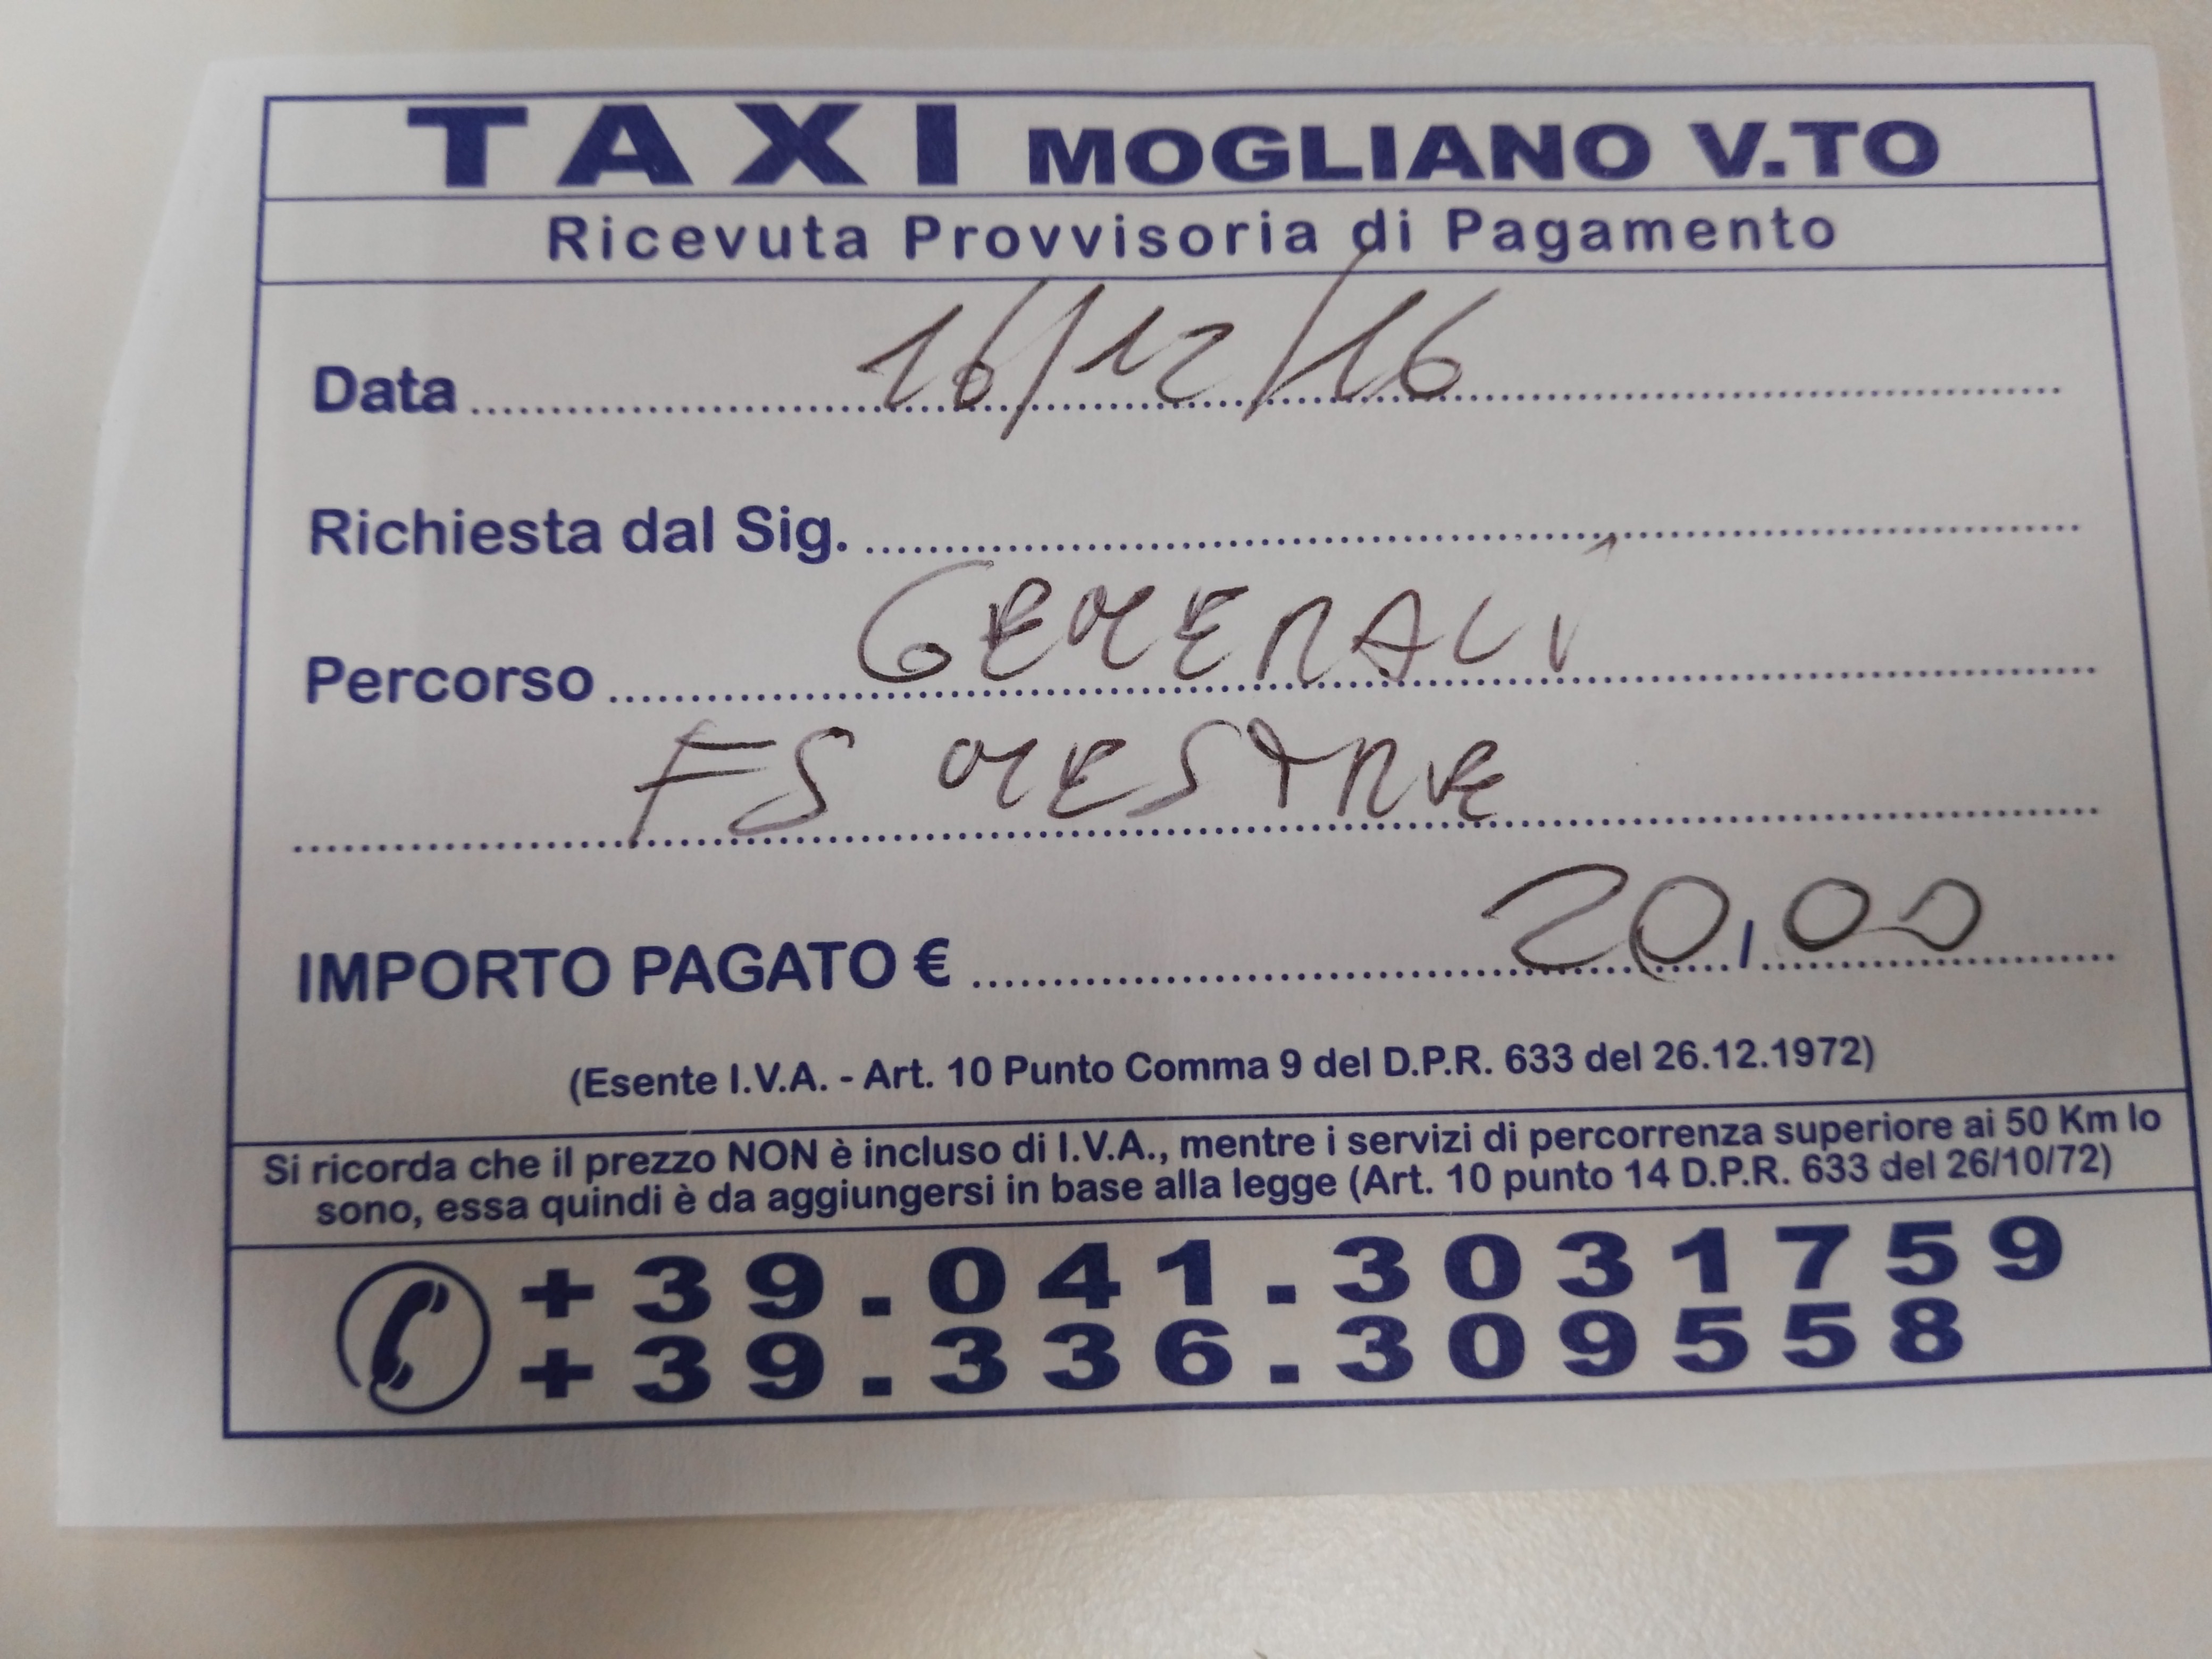 TAXI MOGLIANO V.TO
Ricevuta Provvisoria di Pagamento
Data 16/12/16
Richiesta dal Sig.
Percorso GENERALI
FS MESTRE
IMPORTO PAGATO € 20,00
(Esente I.V.A. - Art. 10 Punto Comma 9 del D.P.R. 633 del 26.12.1972)
Si ricorda che il prezzo NON è incluso di I.V.A., mentre i servizi di percorrenza superiore ai 50 Km lo
sono, essa quindi è da aggiungersi in base alla legge (Art. 10 punto 14 D.P.R. 633 del 26/10/72)
+39.041.3031759
+39.336.309558